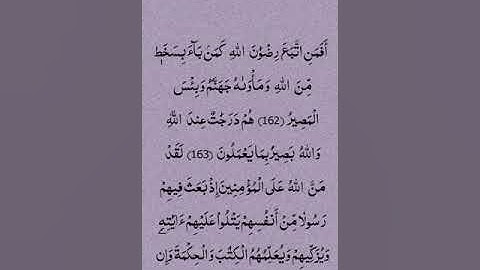 أَفَمَنِ ٱتَّبَعَ رِضْوَٰنَ ٱللَّهِ كَمَنۢ بَآءَ بِسَخَطٍ
مِّنَ ٱللَّهِ وَمَأْوَىٰهُ جَهَنَّمُ وَبِئْسَ
ٱلْمَصِيرُ (162) هُمْ دَرَجَٰتٌ عِندَ ٱللَّهِ
وَٱللَّهُ بَصِيرٌۢ بِمَا يَعْمَلُونَ (163) لَقَدْ
مَنَّ ٱللَّهُ عَلَى ٱلْمُؤْمِنِينَ إِذْ بَعَثَ فِيهِمْ
رَسُولًا مِّنْ أَنفُسِهِمْ يَتْلُوا۟ عَلَيْهِمْ ءَايَٰتِهِۦ
وَيُزَكِّيهِمْ وَيُعَلِّمُهُمُ ٱلْكِتَٰبَ وَٱلْحِكْمَةَ وَإِن